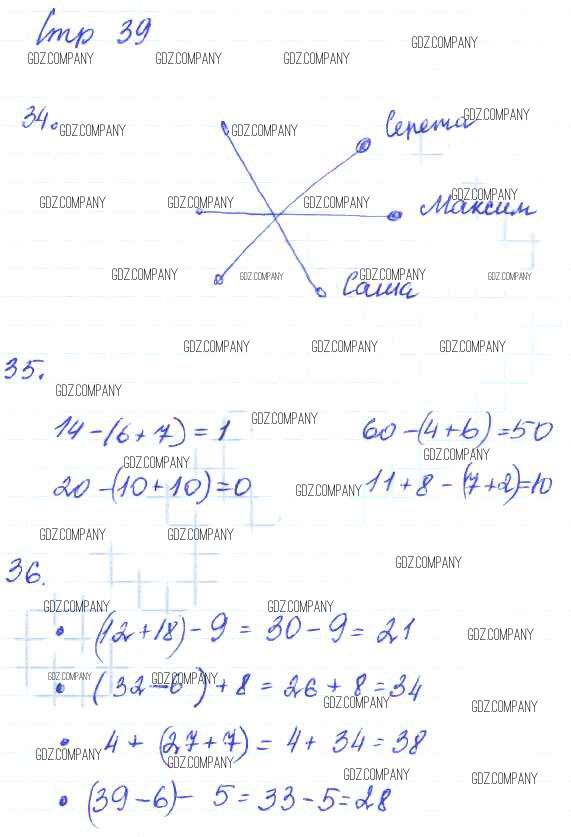 Стр 39
GDZ.COMPANY
GDZ.COMPANY GDZ.COMPANY GDZ.COMPANY
34. GDZ.COMPANY GDZ.COMPANY Сережа GDZ.COMPANY
GDZ.COMPANY GDZ.COMPANY GDZ.COMPANY Максим GDZ.COMPANY
GDZ.COMPANY GDZ.COMPANY Саша GDZ.COMPANY GDZ.COMPANY
GDZ.COMPANY GDZ.COMPANY GDZ.COMPANY
35.
GDZ.COMPANY
14-(6+7)=1 GDZ.COMPANY 60-(4+6)=50
GDZ.COMPANY GDZ.COMPANY
20-(10+10)=0 GDZ.COMPANY 11+8-(7+2)=10
GDZ.COMPANY GDZ.COMPANY
36. GDZ.COMPANY
GDZ.COMPANY GDZ.COMPANY
• (12+18)-9=30-9=21 GDZ.COMPANY
GDZ.COMPANY GDZ.COMPANY
• (32-6)+8=26+8=34
GDZ.COMPANY GDZ.COMPANY
• 4+(27+7)=4+34=38
GDZ.COMPANY GDZ.COMPANY
GDZ.COMPANY GDZ.COMPANY
• (39-6)-5=33-5=28